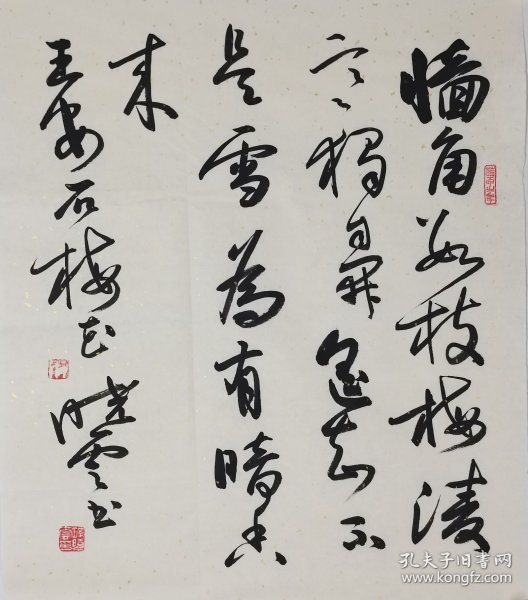 墙角数枝梅凌
寒独自開遥知不
是雪為有暗香
来
王安石梅花 晓雲书
孔夫子旧书网
www.kongfz.com